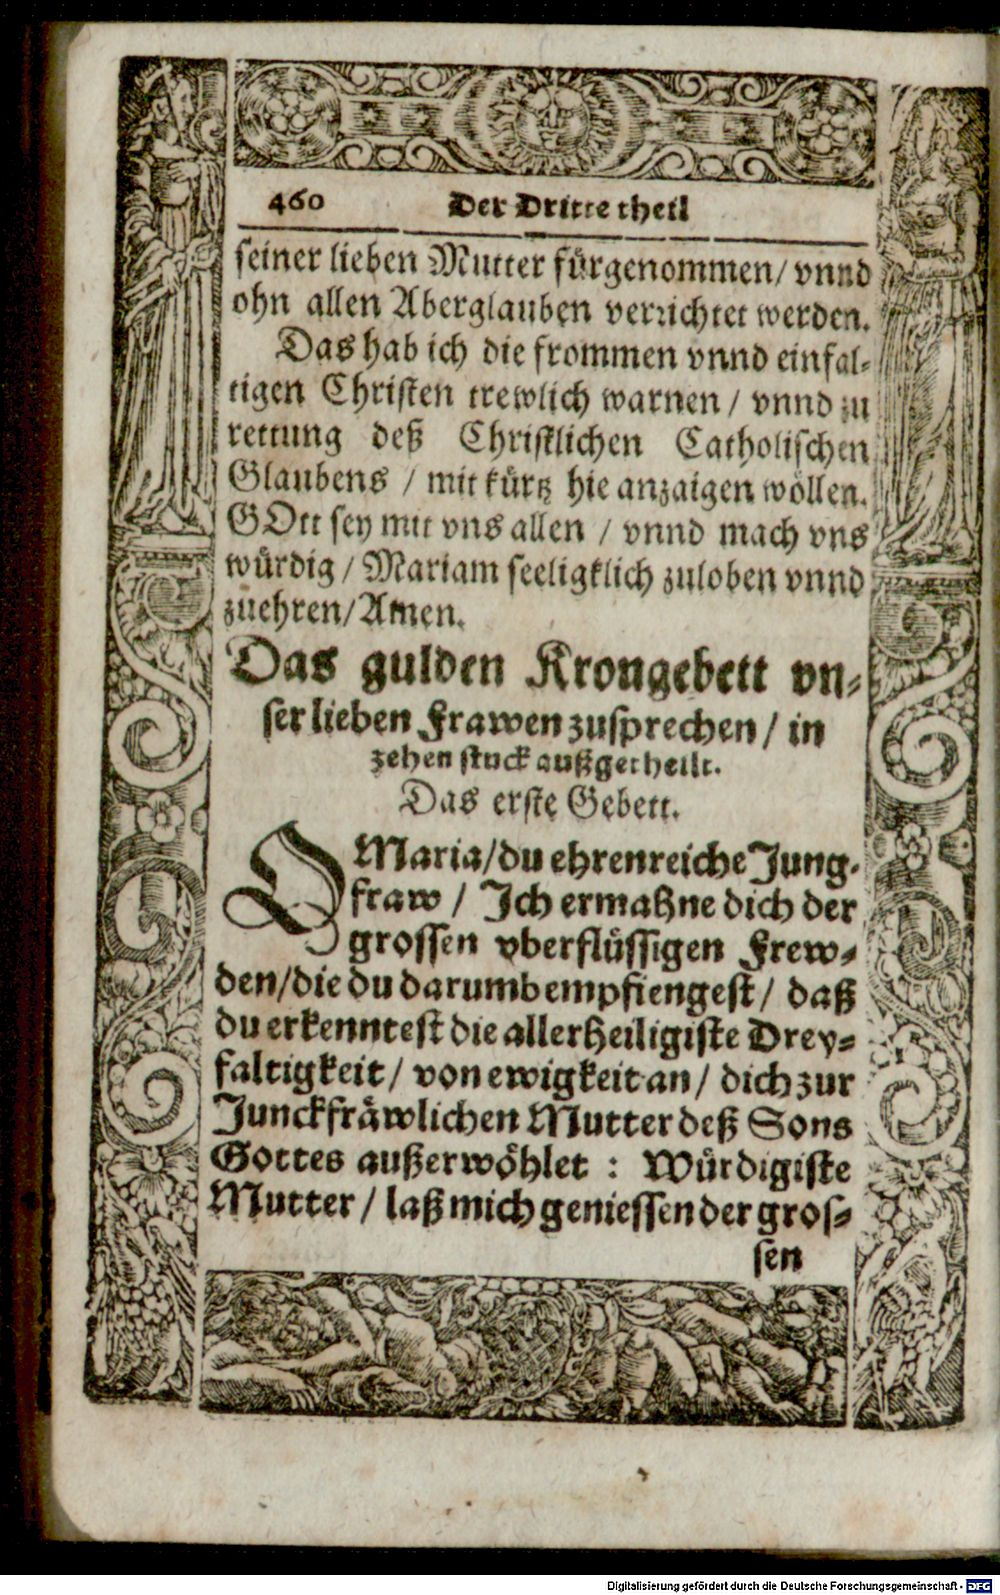 460 Der Dritte theil
seiner lieben Mutter fürgenommen/ vnnd
ohn allen Aberglauben verrichtet werden.
Das hab ich die frommen vnnd einfal-
tigen Christen trewlich warnen / vnnd zu
rettung deß Christlichen Catholischen
Glaubens / mit kürtz hie anzaigen wöllen.
GOtt sey mit vns allen / vnnd mach vns
würdig / Mariam seeligklich zuloben vnnd
zuehren/ Amen.
Das gulden Krongebett vn-
ser lieben Frawen zusprechen / in
zehen stuck außgetheilt.
Das erste Gebett.
O Maria/ du ehrenreiche Jung-
fraw / Ich ermahne dich der
grossen vberflüssigen Frew-
den/ die du darumb empfiengest / daß
du erkenntest die allerheiligiste Drey-
faltigkeit / von ewigkeit an / dich zur
Junckfräwlichen Mutter deß Sons
Gottes außerwöhlet : Würdigiste
Mutter / laß mich geniessen der gros-
sen
Digitalisierung gefördert durch die Deutsche Forschungsgemeinschaft - DFG